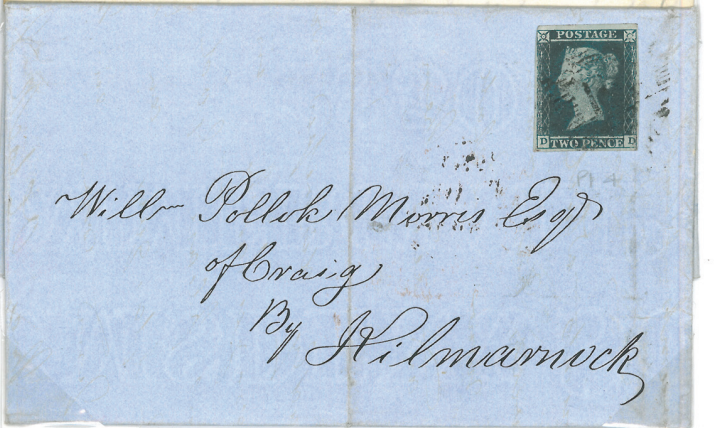 POSTAGE
D TWO PENCE D
Willm Pollok Morris Esqr
of Craig
By
Kilmarnock